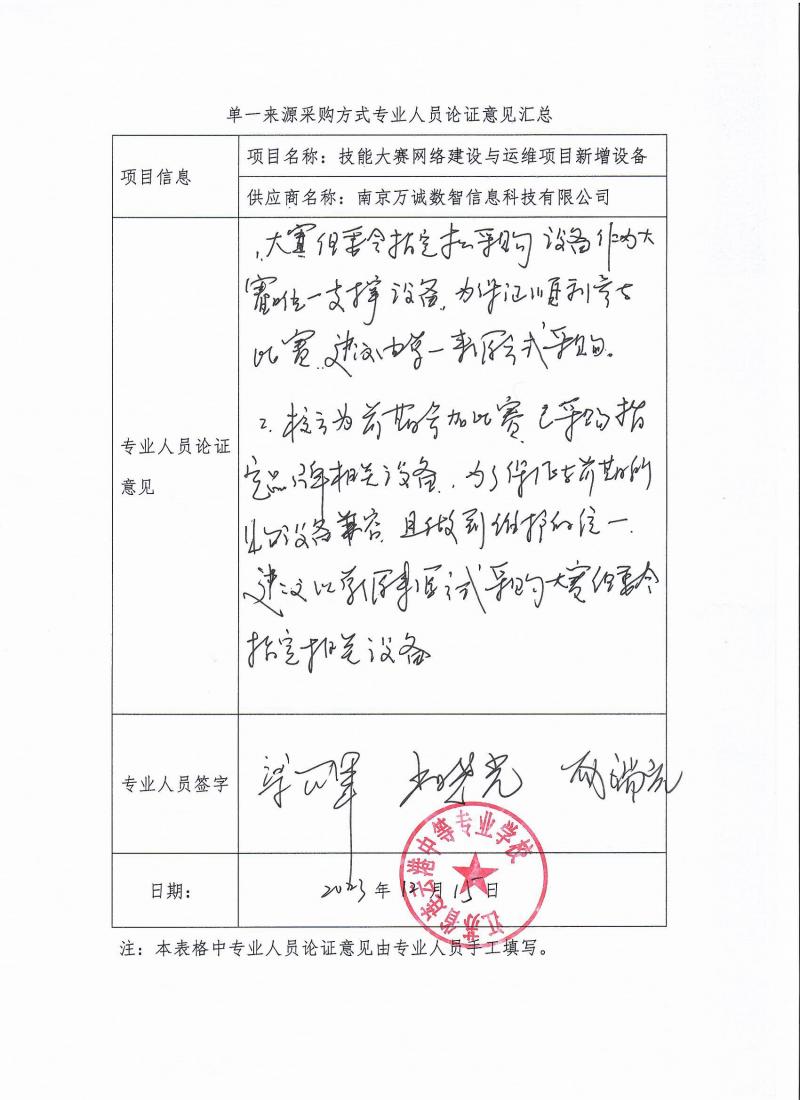 单一来源采购方式专业人员论证意见汇总
项目信息
项目名称：技能大赛网络建设与运维项目新增设备
供应商名称：南京万诚数智信息科技有限公司
专业人员论证
意见
1、大赛组委会指定拟采购设备作为大
赛唯一支撑设备，为保证顺利参与
比赛，建议由单一来源方式采购。
2、校方为前期参加比赛，已采购指
定品牌相关设备，为了保证与前期的
设备兼容，且做到维护的统一，
建议以单一来源方式采购大赛组委会
指定相关设备
专业人员签字
日期：
2023年12月15日
江苏省连云港中等专业学校
注：本表格中专业人员论证意见由专业人员手工填写。